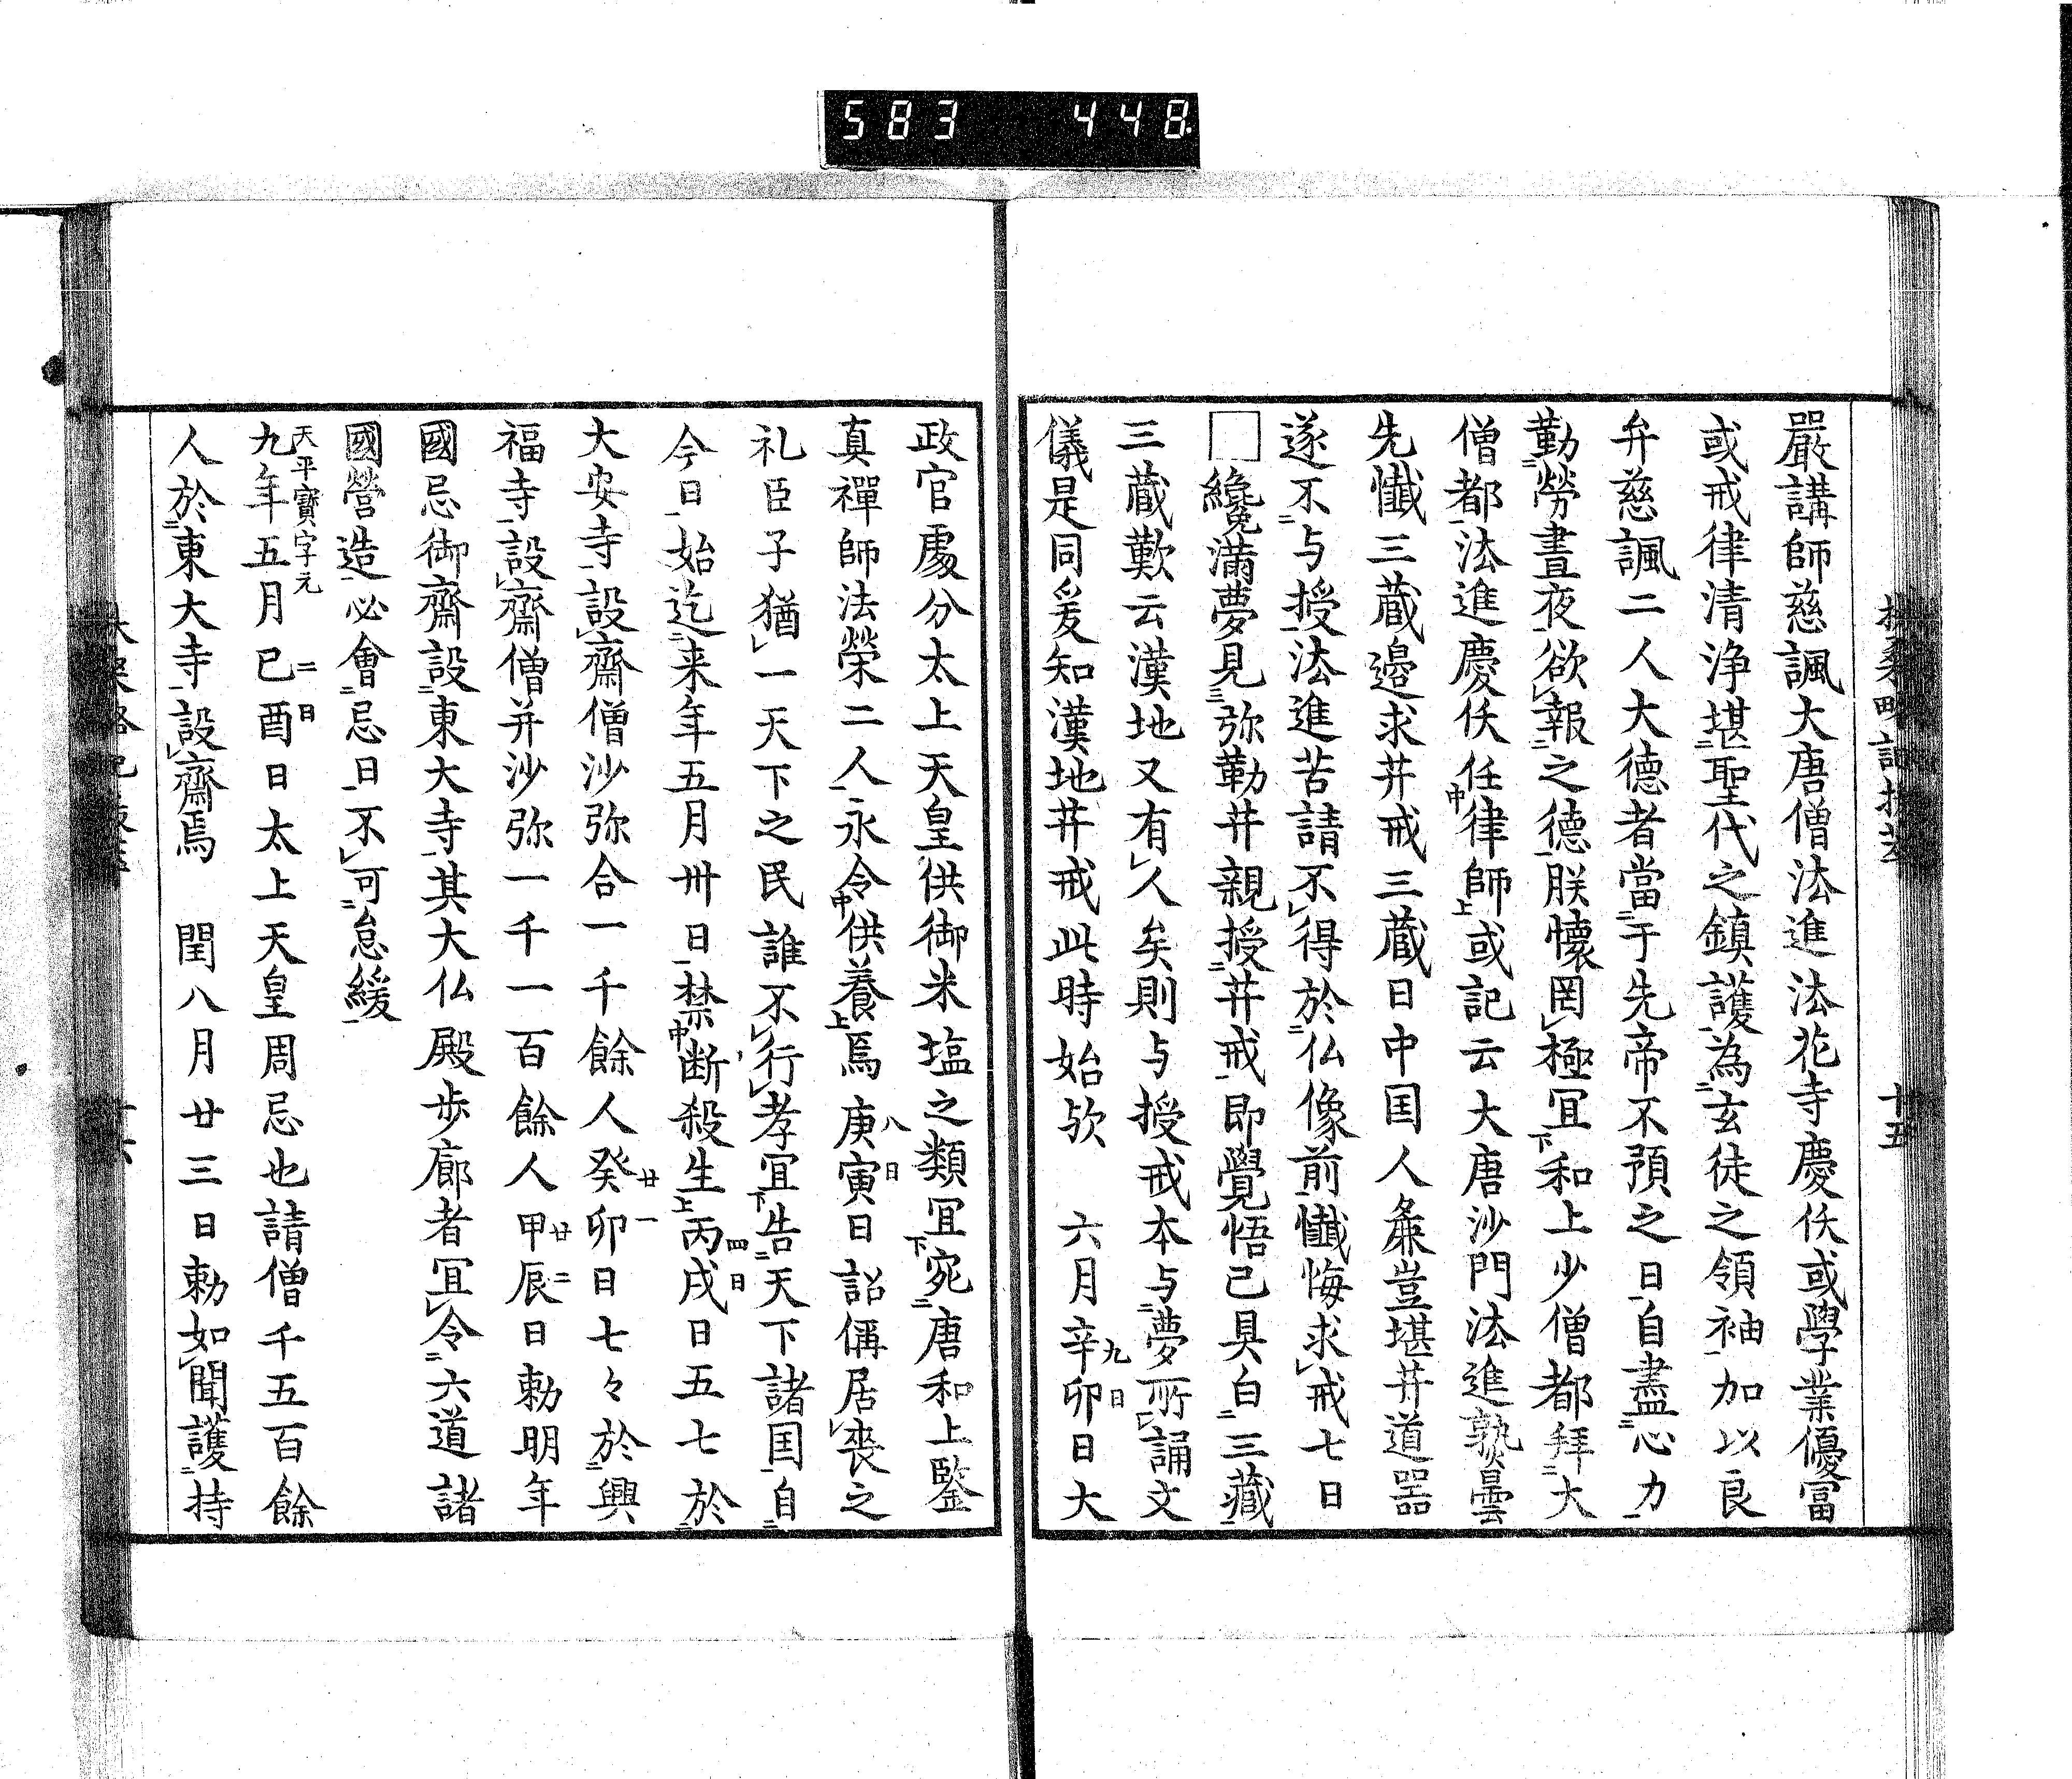 583 448.
嚴講師慈諷大唐僧法進法花寺慶俊或學業優冨
或戒律清浄堪聖代之鎮護為玄徒之領袖加以良
弁慈諷二人大德者當于先帝不預之日自盡心力
勤勞晝夜欲報之德朕懷罔極冝和上少僧都拜大
僧都法進慶俊任律師或記云大唐沙門法進熟曇
先懺三蔵邉求菩戒三蔵日中国人麁豈堪菩道噐
遂不与授法進苦請不得於仏像前懺悔求戒七日
□纔滿夢見弥勒菩親授菩戒即覺悟已具白三藏
三蔵歎云漢地又有人矣則与授戒本与夢所誦文
儀是同爰知漢地菩戒此時始欤　六月辛卯九日日大
政官處分太上天皇供御米塩之類冝宛唐和上鑒
真禪師法榮二人永令供養焉庚寅八日日詔偁居喪之
礼臣子猶一天下之民誰不行孝冝告天下諸国自
今日始迄来年五月卅日禁断殺生丙戌四日日五七於
大安寺設齋僧沙弥合一千餘人癸卯廿一日七々於興
福寺設齋僧并沙弥一千一百餘人甲辰廿二日勅明年
國忌御齋設東大寺其大仏殿歩廊者冝令六道諸
國營造必會忌日不可怠緩
天平寳字元
九年五月己酉二日日太上天皇周忌也請僧千五百餘
人於東大寺設齋焉　閏八月廿三日勅如聞護持
十五